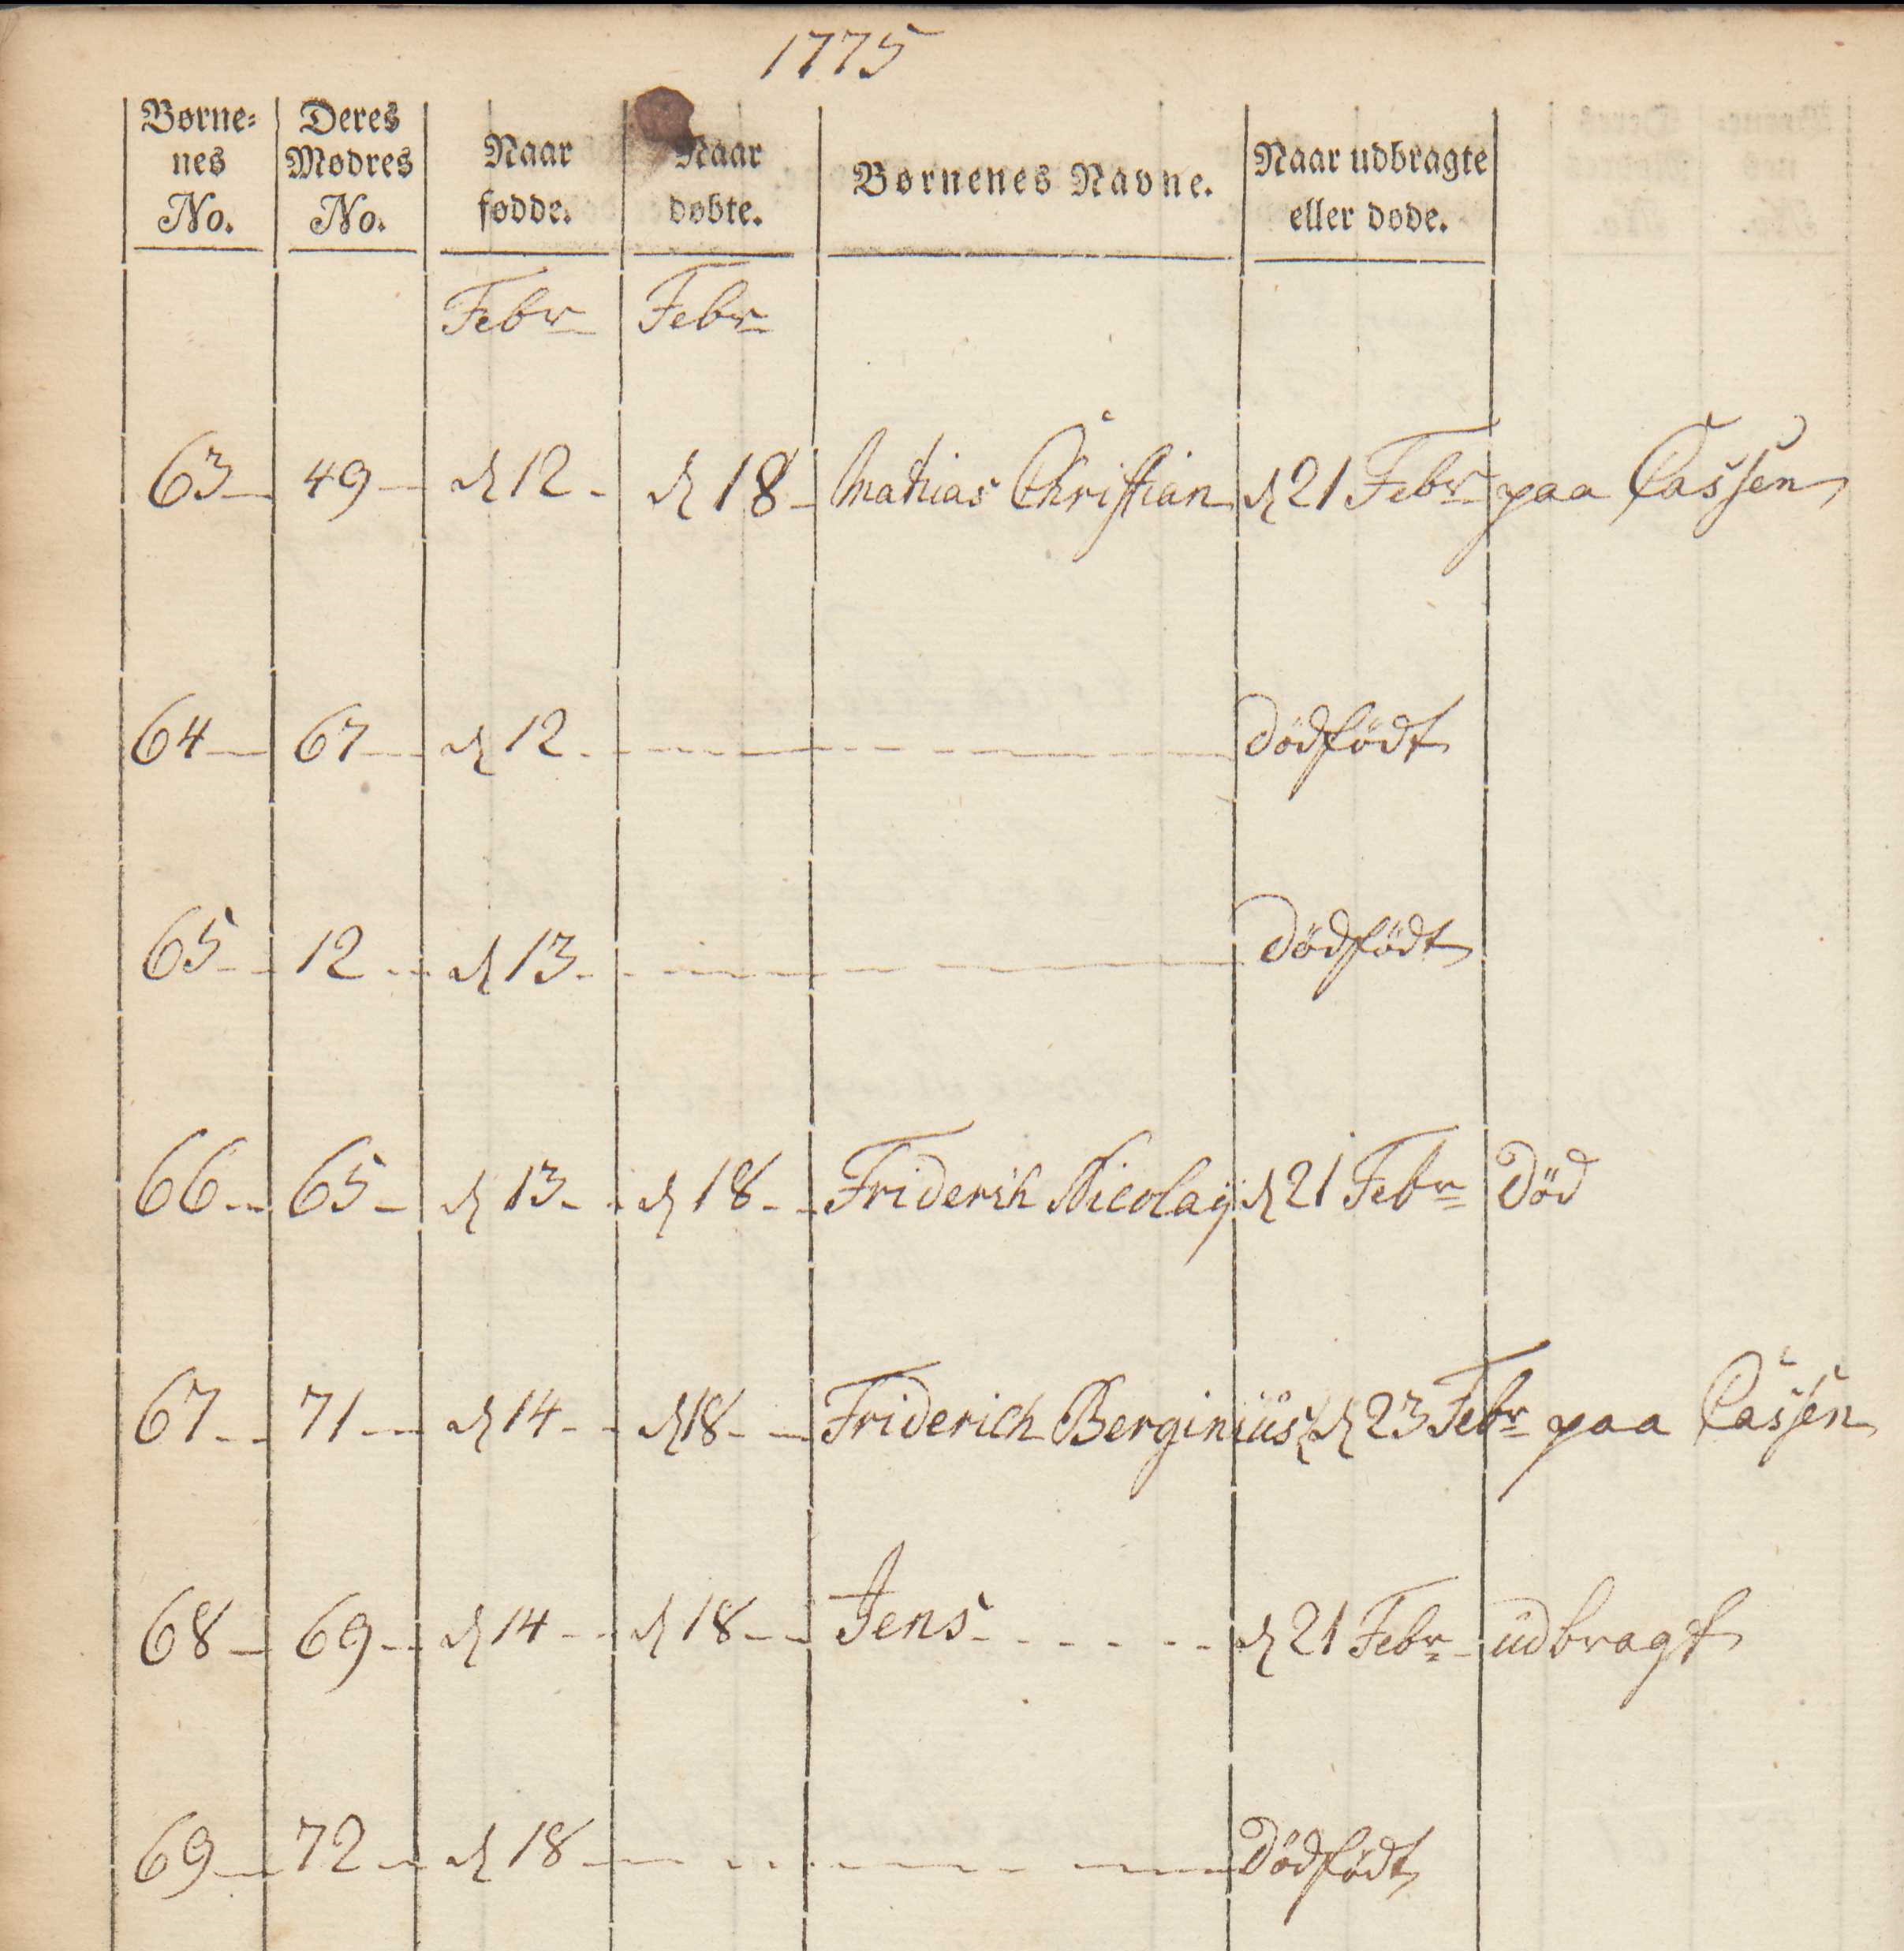 1775
Børne= Deres
nes Mødres Naar Naar Børnenes Navne. Naar udbragte
No. No. fødde. døbte. eller døde.
Febr Febr
63 49 d 12 d 18 Mathias Christian d 21 Febr paa Cassen
64 67 d 12 dödfödt
65 12 d 13 dödfödt
66 65 d 13 d 18 Friderich Nicolaÿ d 21 Febr död
67 71 d 14 d 18 Friderich Berginiüs d 23 Febr paa Cassen
68 69 d 14 d 18 Jens d 21 Febr üdbragt
69 72 d 18 dödfödt